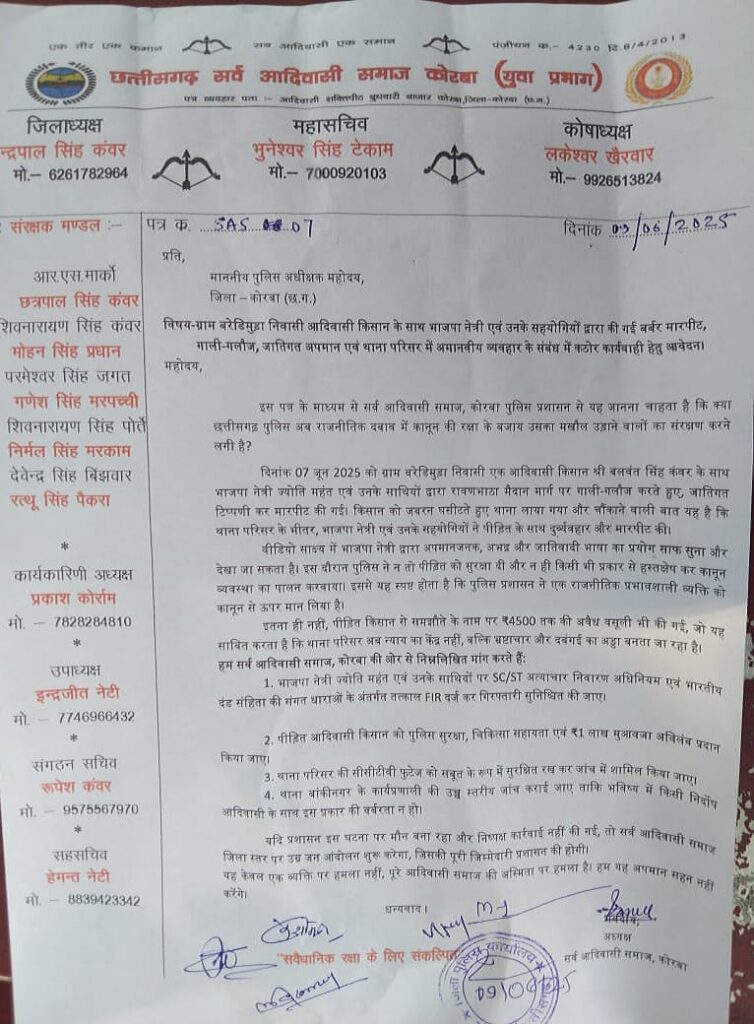 एक तीर एक कमान सब आदिवासी एक समान पंजीयन क.- 4230 दि.6/4/2013
छत्तीसगढ़ सर्व आदिवासी समाज कोरबा (युवा प्रभाग)
पत्र व्यवहार पता :- आदिवासी शक्तिपीठ बुधवारी बाजार कोरबा,जिला-कोरबा (छ.ग.)
जिलाध्यक्ष
न्द्रपाल सिंह कंवर
मो.– 6261782964
महासचिव
भुनेश्वर सिंह टेकाम
मो.– 7000920103
कोषाध्यक्ष
लकेश्वर खैरवार
मो.– 9926513824
संरक्षक मण्डल :–
आर.एस.मार्को
छत्रपाल सिंह कंवर
शिवनारायण सिंह कंवर
मोहन सिंह प्रधान
परमेश्वर सिंह जगत
गणेश सिंह मरपच्ची
शिवनारायण सिंह पोर्ते
निर्मल सिंह मरकाम
देवेन्द्र सिंह बिंझवार
रत्थू सिंह पैकरा
*
कार्यकारिणी अध्यक्ष
प्रकाश कोर्राम
मो. – 7828284810
*
उपाध्यक्ष
इन्द्रजीत नेटी
मो. – 7746966432
*
संगठन सचिव
रूपेश कंवर
मो. – 9575567970
*
सहसचिव
हेमन्त नेटी
मो. – 8839423342
पत्र क. SAS 07 दिनांक 09/06/2025
प्रति,
माननीय पुलिस अधीक्षक महोदय,
जिला – कोरबा (छ.ग.)
विषय-ग्राम बरेडिमुड़ा निवासी आदिवासी किसान के साथ भाजपा नेत्री एवं उनके सहयोगियों द्वारा की गई बर्बर मारपीट,
गाली-गलौज, जातिगत अपमान एवं थाना परिसर में अमानवीय व्यवहार के संबंध में कठोर कार्यवाही हेतु आवेदन।
महोदय,
इस पत्र के माध्यम से सर्व आदिवासी समाज, कोरबा पुलिस प्रशासन से यह जानना चाहता है कि क्या
छत्तीसगढ़ पुलिस अब राजनीतिक दबाव में कानून की रक्षा के बजाय उसका मखौल उड़ाने वालों का संरक्षण करने
लगी है?
दिनांक 07 जून 2025 को ग्राम बरेडिमुड़ा निवासी एक आदिवासी किसान श्री बलवंत सिंह कंवर के साथ
भाजपा नेत्री ज्योति महंत एवं उनके साथियों द्वारा रावणभाठा मैदान मार्ग पर गाली-गलौज करते हुए, जातिगत
टिप्पणी कर मारपीट की गई। किसान को जबरन घसीटते हुए थाना लाया गया और चौंकाने वाली बात यह है कि
थाना परिसर के भीतर, भाजपा नेत्री एवं उनके सहयोगियों ने पीड़ित के साथ दुर्व्यवहार और मारपीट की।
वीडियो साक्ष्य में भाजपा नेत्री द्वारा अपमानजनक, अभद्र और जातिवादी भाषा का प्रयोग साफ सुना और
देखा जा सकता है। इस दौरान पुलिस ने न तो पीड़ित को सुरक्षा दी और न ही किसी भी प्रकार से हस्तक्षेप कर कानून
व्यवस्था का पालन करवाया। इससे यह स्पष्ट होता है कि पुलिस प्रशासन ने एक राजनीतिक प्रभावशाली व्यक्ति को
कानून से ऊपर मान लिया है।
इतना ही नहीं, पीड़ित किसान से समझौते के नाम पर ₹4500 तक की अवैध वसूली भी की गई, जो यह
साबित करता है कि थाना परिसर अब न्याय का केंद्र नहीं, बल्कि भ्रष्टाचार और दबंगई का अड्डा बनता जा रहा है।
हम सर्व आदिवासी समाज, कोरबा की ओर से निम्नलिखित मांग करते हैं:
1. भाजपा नेत्री ज्योति महंत एवं उनके साथियों पर SC/ST अत्याचार निवारण अधिनियम एवं भारतीय
दंड संहिता की संगत धाराओं के अंतर्गत तत्काल FIR दर्ज कर गिरफ्तारी सुनिश्चित की जाए।
2. पीड़ित आदिवासी किसान को पुलिस सुरक्षा, चिकित्सा सहायता एवं ₹1 लाख मुआवजा अविलंब प्रदान
किया जाए।
3. थाना परिसर की सीसीटीवी फुटेज को सबूत के रूप में सुरक्षित रख कर जांच में शामिल किया जाए।
4. थाना बांकीनगर के कार्यप्रणाली की उच्च स्तरीय जांच कराई जाए ताकि भविष्य में किसी निर्दोष
आदिवासी के साथ इस प्रकार की बर्बरता न हो।
यदि प्रशासन इस घटना पर मौन बना रहा और निष्पक्ष कार्रवाई नहीं की गई, तो सर्व आदिवासी समाज
जिला स्तर पर उग्र जन आंदोलन शुरू करेगा, जिसकी पूरी जिम्मेदारी प्रशासन की होगी।
यह केवल एक व्यक्ति पर हमला नहीं, पूरे आदिवासी समाज की अस्मिता पर हमला है। हम यह अपमान सहन नहीं
करेंगे।
धन्यवाद।
अध्यक्ष
सर्व आदिवासी समाज, कोरबा
"सवैधानिक रक्षा के लिए संकल्पित
जिला पुलिस कार्यालय